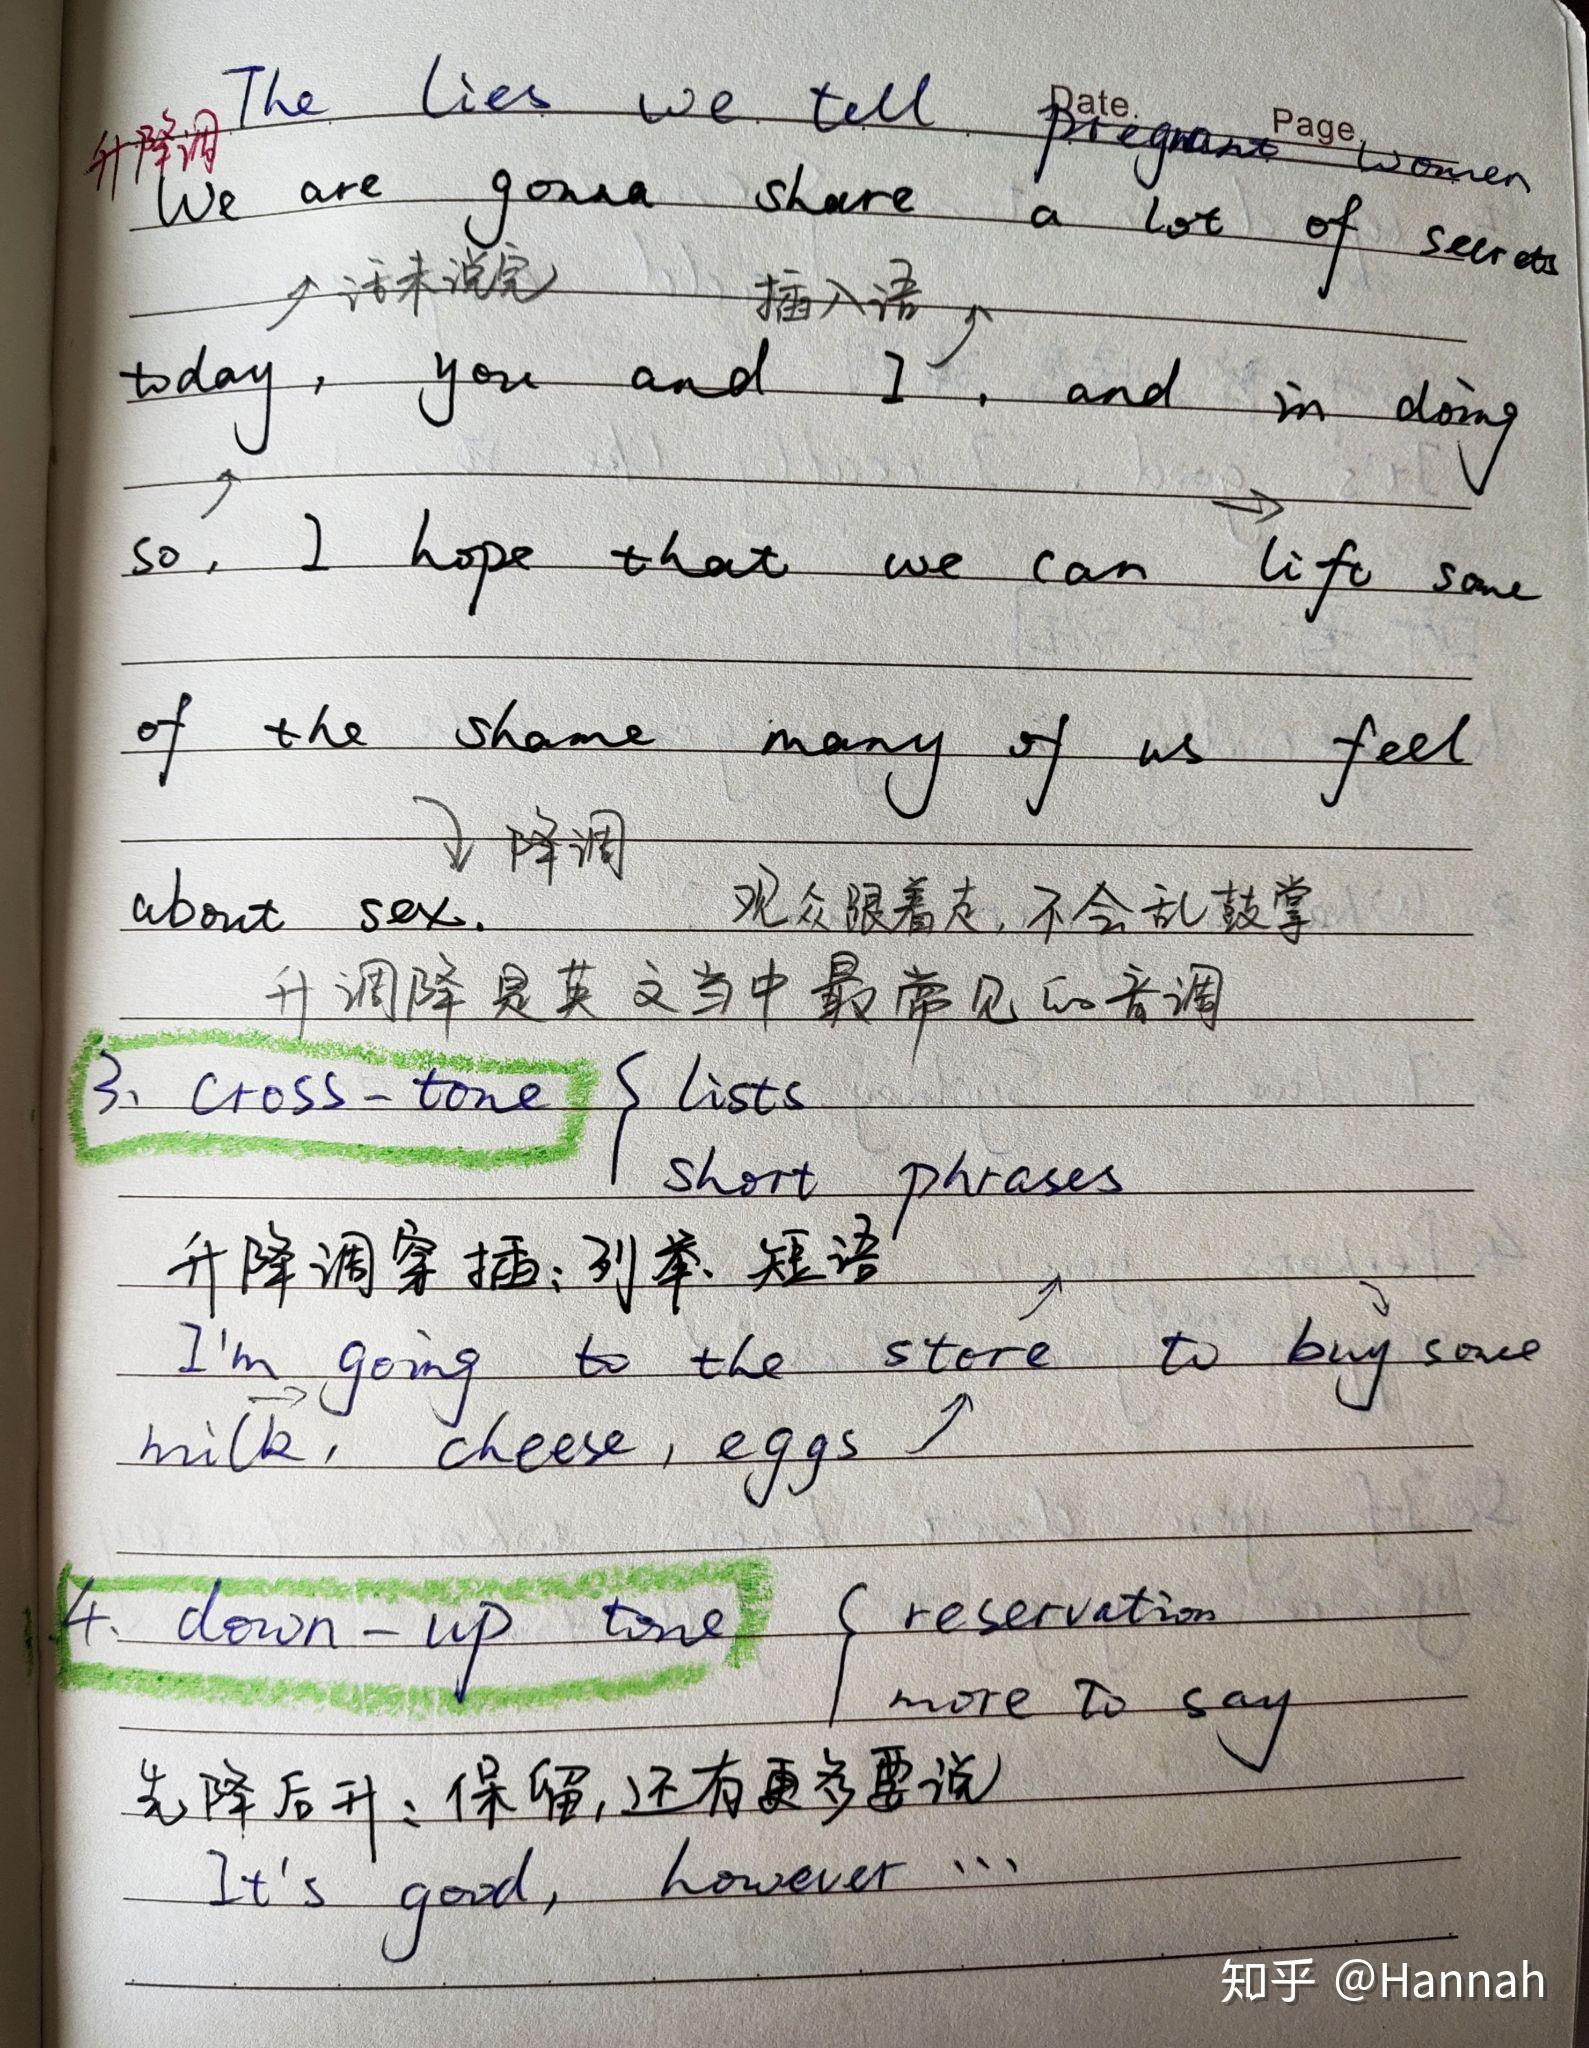 Date.
Page.
The lies we tell pregnant women
升降调
We are gonna share a lot of secrets
↗ 话未说完 插入语 ↗
today, you and I, and in doing
↗ →
so, I hope that we can lift some
of the shame many of us feel
降调
about sex. 观众跟着走,不会乱鼓掌
升调降是英文当中最常见的音调
3. cross-tone { lists
short phrases
升降调穿插:列举、短语
↗ ↘
I'm going to the store to buy some
→ ↗
milk, cheese, eggs
4. down-up tone { reservation
more to say
先降后升:保留,还有更多要说
It's good, however ...
知乎 @Hannah